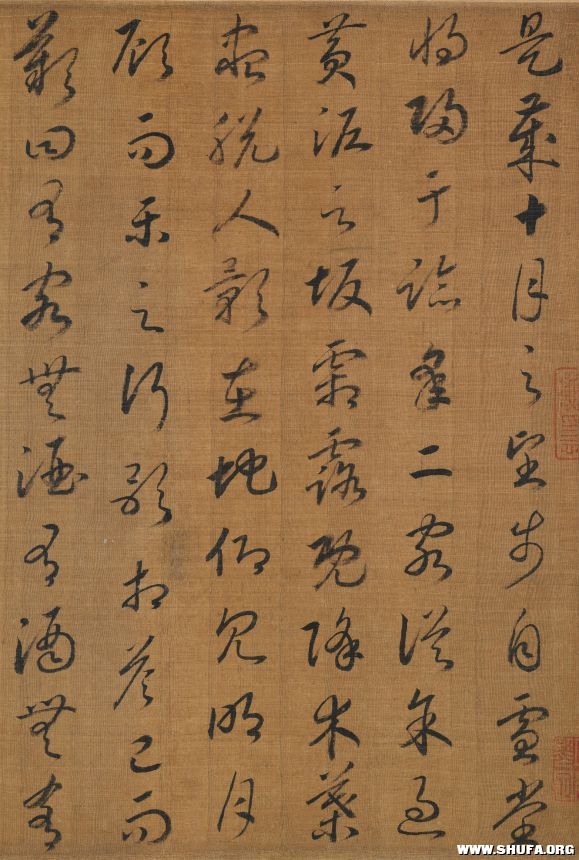 是歲十月之望步自雪堂
將歸于臨皋二客從余過
黃泥之坂霜露既降木葉
盡脫人影在地仰見明月
顧而樂之行歌相答已而
歎曰有客無酒有酒無肴
WWW.SHUFA.ORG